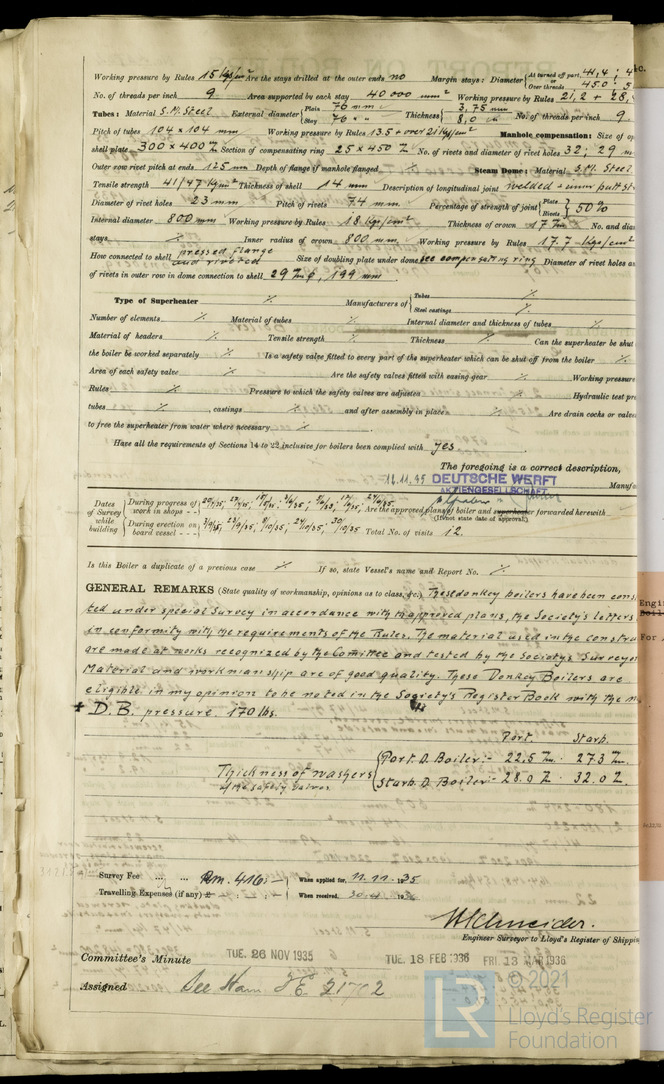 Working pressure by Rules 15 kg/cm² Are the stays drilled at the outer ends no Margin stays: Diameter { At turned off part, 44,4 ; 4 or Over threads 45.0 ; 5
No. of threads per inch 9 Area supported by each stay 40 000 mm² Working pressure by Rules 21,2 + 28,
Tubes: Material S.M. Steel External diameter { Plain 76 mm Stay 76 " Thickness { 3,75 mm 8,0 No. of threads per inch 9.
Pitch of tubes 104 x 104 mm Working pressure by Rules 13.5 + over 21 kg/cm² Manhole compensation: Size of op
shell plate 300 x 400 Section of compensating ring 25 x 450 No. of rivets and diameter of rivet holes 32 ; 29 m
Outer row rivet pitch at ends 125 mm Depth of flange if manhole flanged ⁒ Steam Dome: Material S.M. Steel
Tensile strength 41/47 kg/mm² Thickness of shell 14 mm Description of longitudinal joint welded butt st
Diameter of rivet holes 23 mm Pitch of rivets 74 mm Percentage of strength of joint { Plate Rivets } 50%
Internal diameter 800 mm Working pressure by Rules 18 kgs/cm² Thickness of crown 17 No. and dia
stays ⁒ Inner radius of crown 800 mm Working pressure by Rules 17.7 kgs/cm²
How connected to shell pressed flange and riveted Size of doubling plate under dome see compensating ring Diameter of rivet holes an
of rivets in outer row in dome connection to shell 29 , 199 mm
Type of Superheater ⁒ Manufacturers of { Tubes ⁒ Steel castings ⁒
Number of elements ⁒ Material of tubes ⁒ Internal diameter and thickness of tubes ⁒
Material of headers ⁒ Tensile strength ⁒ Thickness ⁒ Can the superheater be shut
the boiler be worked separately ⁒ Is a safety valve fitted to every part of the superheater which can be shut off from the boiler ⁒
Area of each safety valve ⁒ Are the safety valves fitted with easing gear ⁒ Working pressure
Rules ⁒ Pressure to which the safety valves are adjusted ⁒ Hydraulic test pre
tubes ⁒ , castings ⁒ and after assembly in place ⁒ Are drain cocks or valve
to free the superheater from water where necessary ⁒
Have all the requirements of Sections 14 to 22 inclusive for boilers been complied with yes
The foregoing is a correct description,
14.11.35 DEUTSCHE WERFT Manufa
AKTIENGESELLSCHAFT
Dates of Survey while building { During progress of work in shops - -
Are the approved plans of boiler and superheater forwarded herewith
(If not state date of approval.)
During erection on board vessel - - - Total No. of visits 12.
Is this Boiler a duplicate of a previous case ⁒ If so, state Vessel's name and Report No. ⁒
GENERAL REMARKS (State quality of workmanship, opinions as to class, &c.) These donkey boilers have been cons
ted under special Survey in accordance with the approved plans, the Society's letters
in conformity with the requirements of the Rules. The material used in the constru
are made at works recognized by the Comittee and tested by the Society's Surveyor
Material and workmanship are of good quality. These Donkey Boilers are
eligible in my opinion to be noted in the Society's Register Book with the n
D.B. pressure 170 lbs.
Port. Starb.
Thickness of washers of the safety valves { Port. D. Boiler:- 22.5 27.3
Starb. D. Boiler:- 28.0 32.0
Survey Fee ... ... Rm. 416: - When applied for, 11.11.1935
Travelling Expenses (if any) £ When received, 30. 19
W Schneider.
Engineer Surveyor to Lloyd's Register of Shippin
Committee's Minute TUE. 26 NOV 1935 TUE. 18 FEB 1936 FRI 13 MAR 1936
Assigned See Ham F.E. 21702
© 2021
Lloyd's Register
Foundation